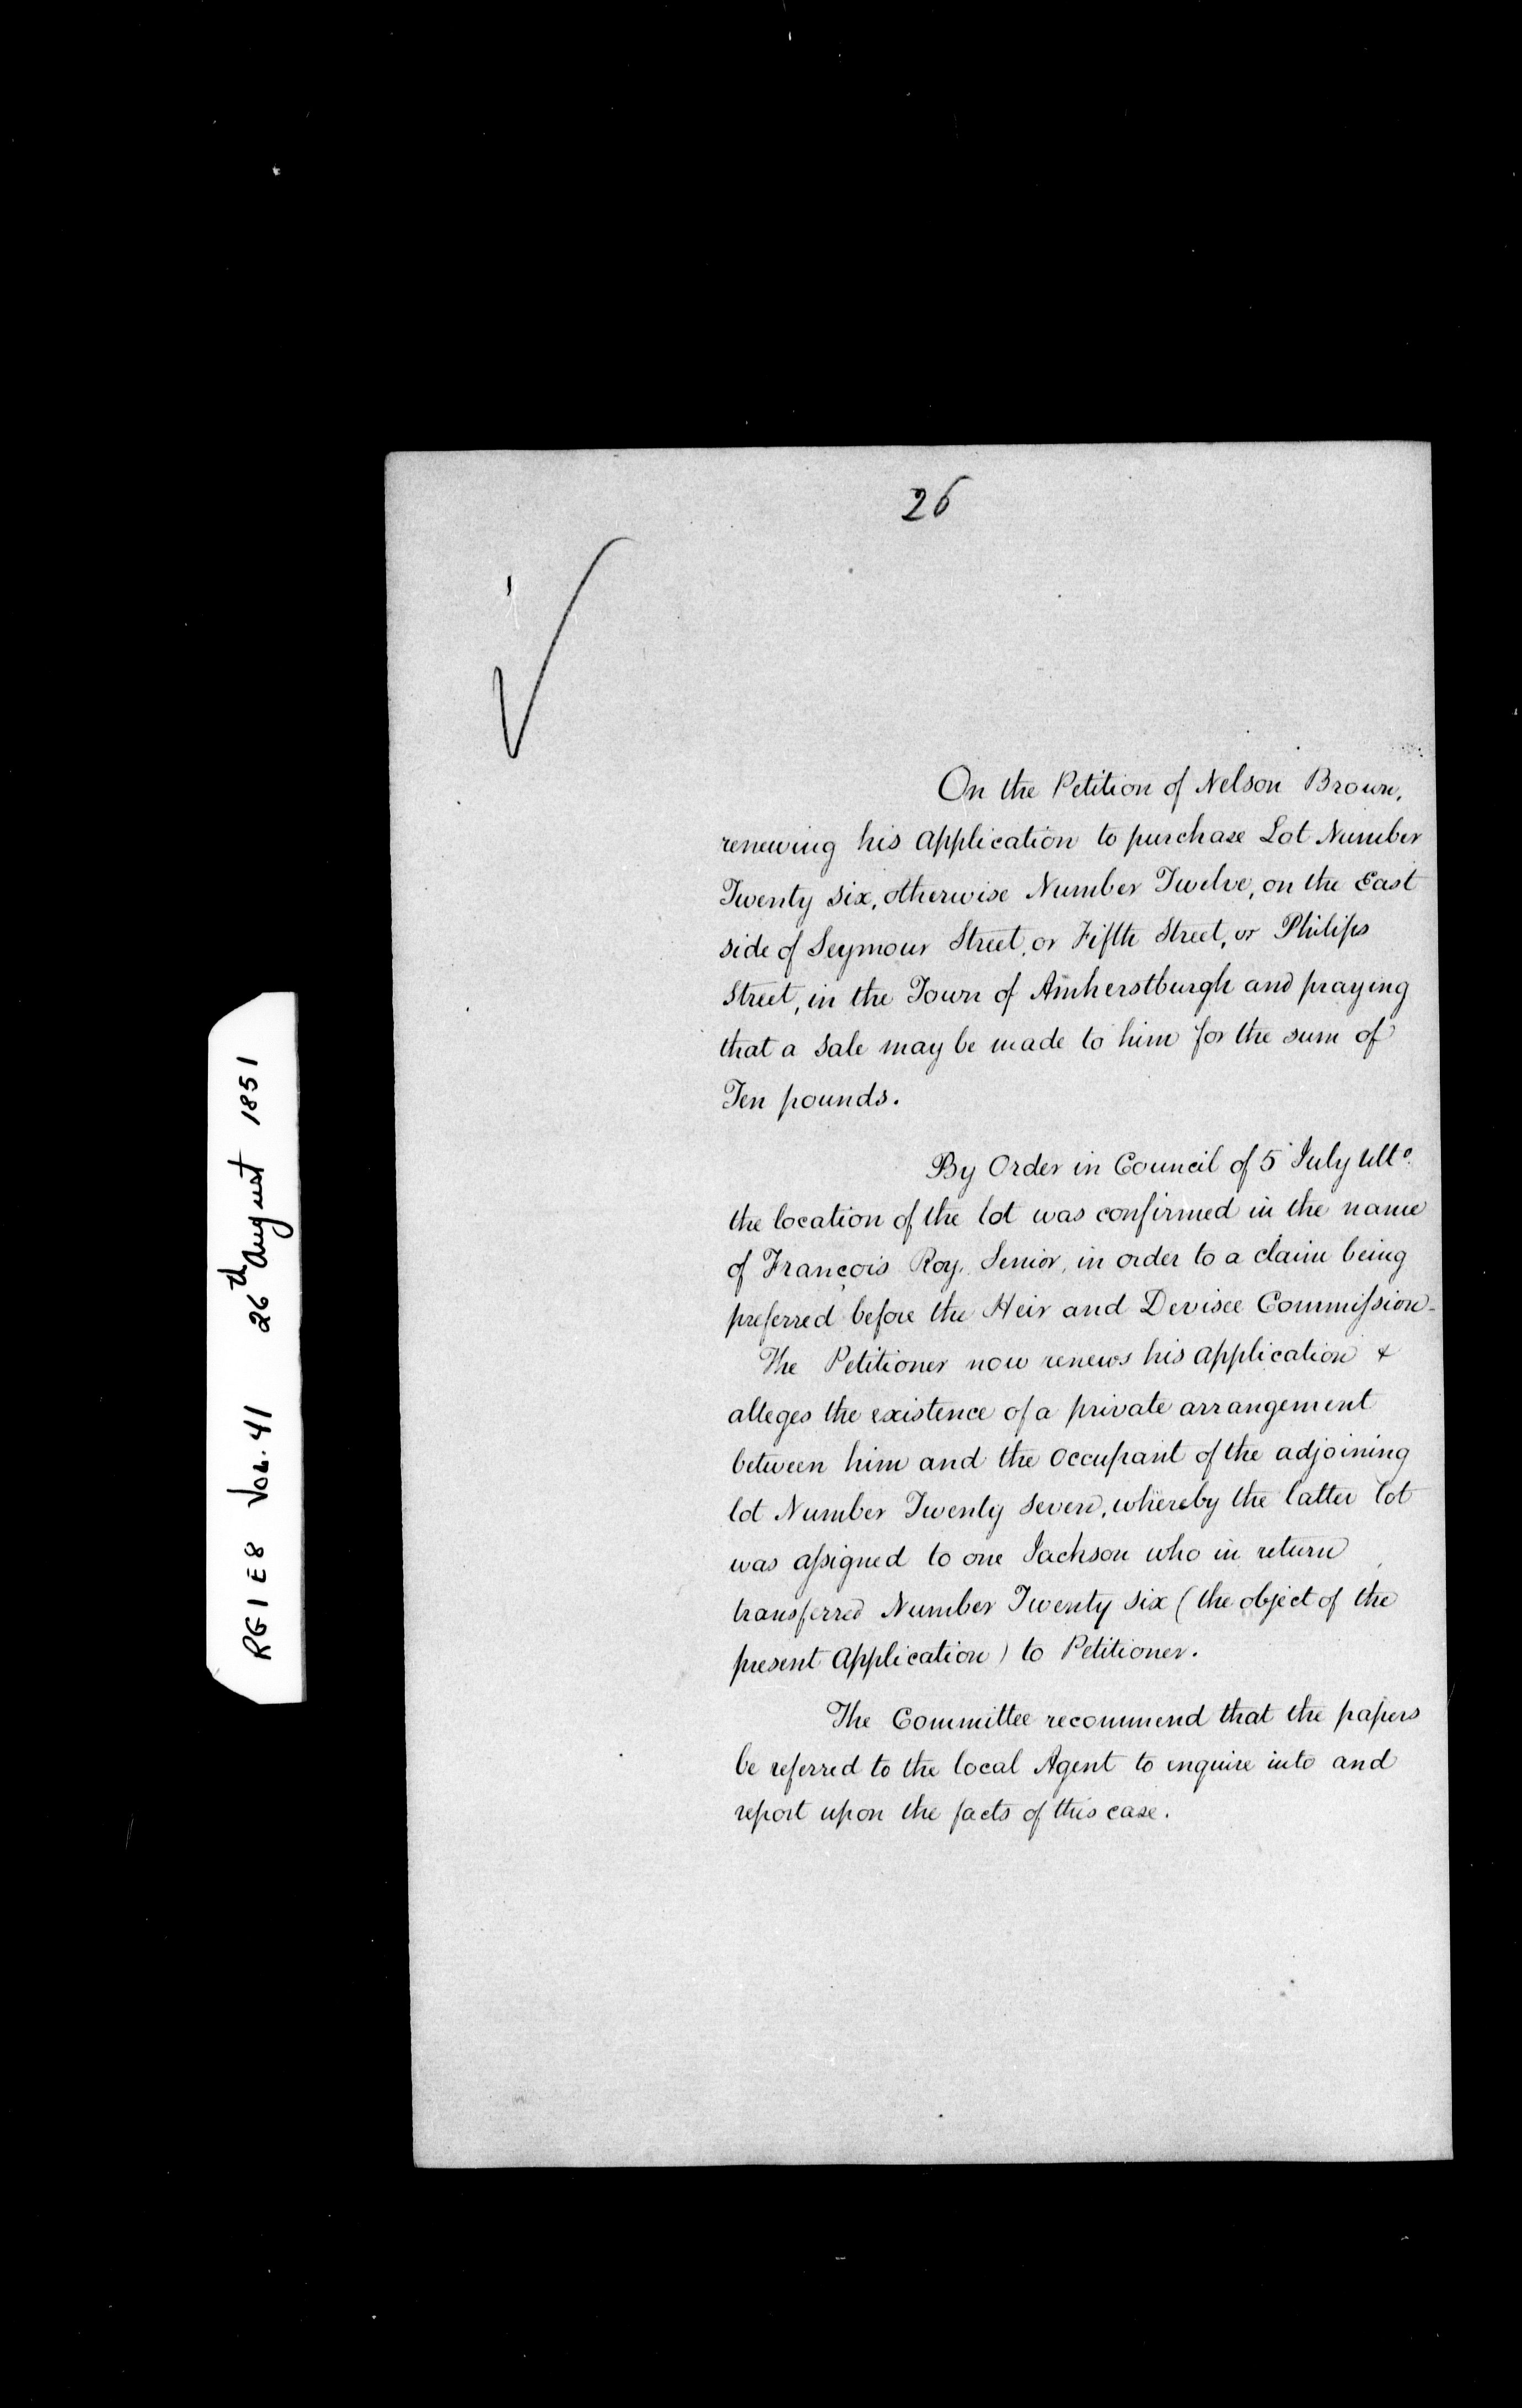 26
On the Petition of Nelson Brown,
renewing his application to purchase Lot Number
Twenty six, otherwise Number Twelve, on the East
side of Seymour Street, or Fifth Street, or Philips
Street, in the Town of Amherstburgh and praying
that a sale may be made to him for the sum of
Ten pounds.
By Order in Council of 5 July Ulto.
the location of the lot was confirmed in the name
of François Roy, Senior, in order to a claim being
preferred before the Heir and Devisee Commission-
The Petitioner now renews his application &
alleges the existence of a private arrangement
between him and the occupant of the adjoining
lot Number Twenty seven, whereby the latter lot
was assigned to one Jackson who in return
transferred Number Twenty six (the object of the
present application) to Petitioner.
The Committee recommend that the papers
be referred to the local Agent to enquire into and
report upon the facts of this case.
RG1 E8 Vol. 41 26th August 1851